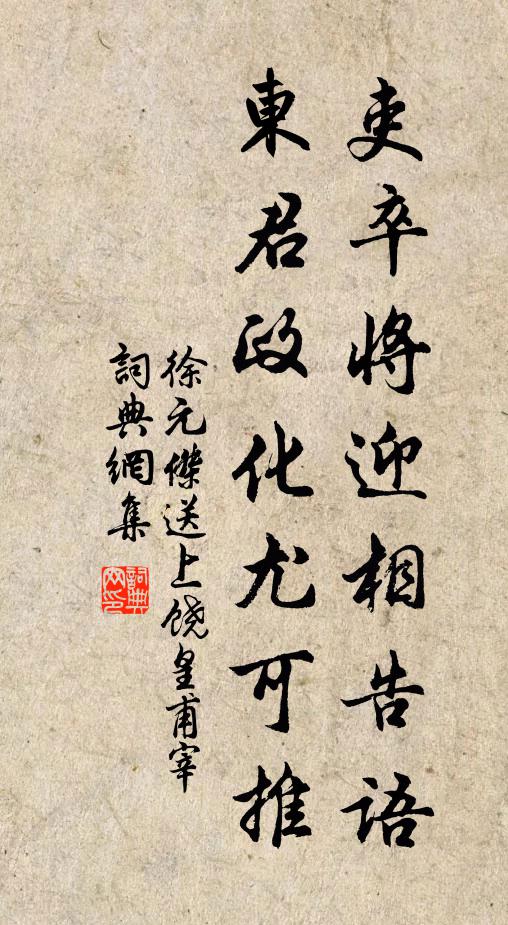 吏卒將迎相告語
東君政化尤可推
徐元傑送上饒皇甫宰
詞典網集
詞典網印